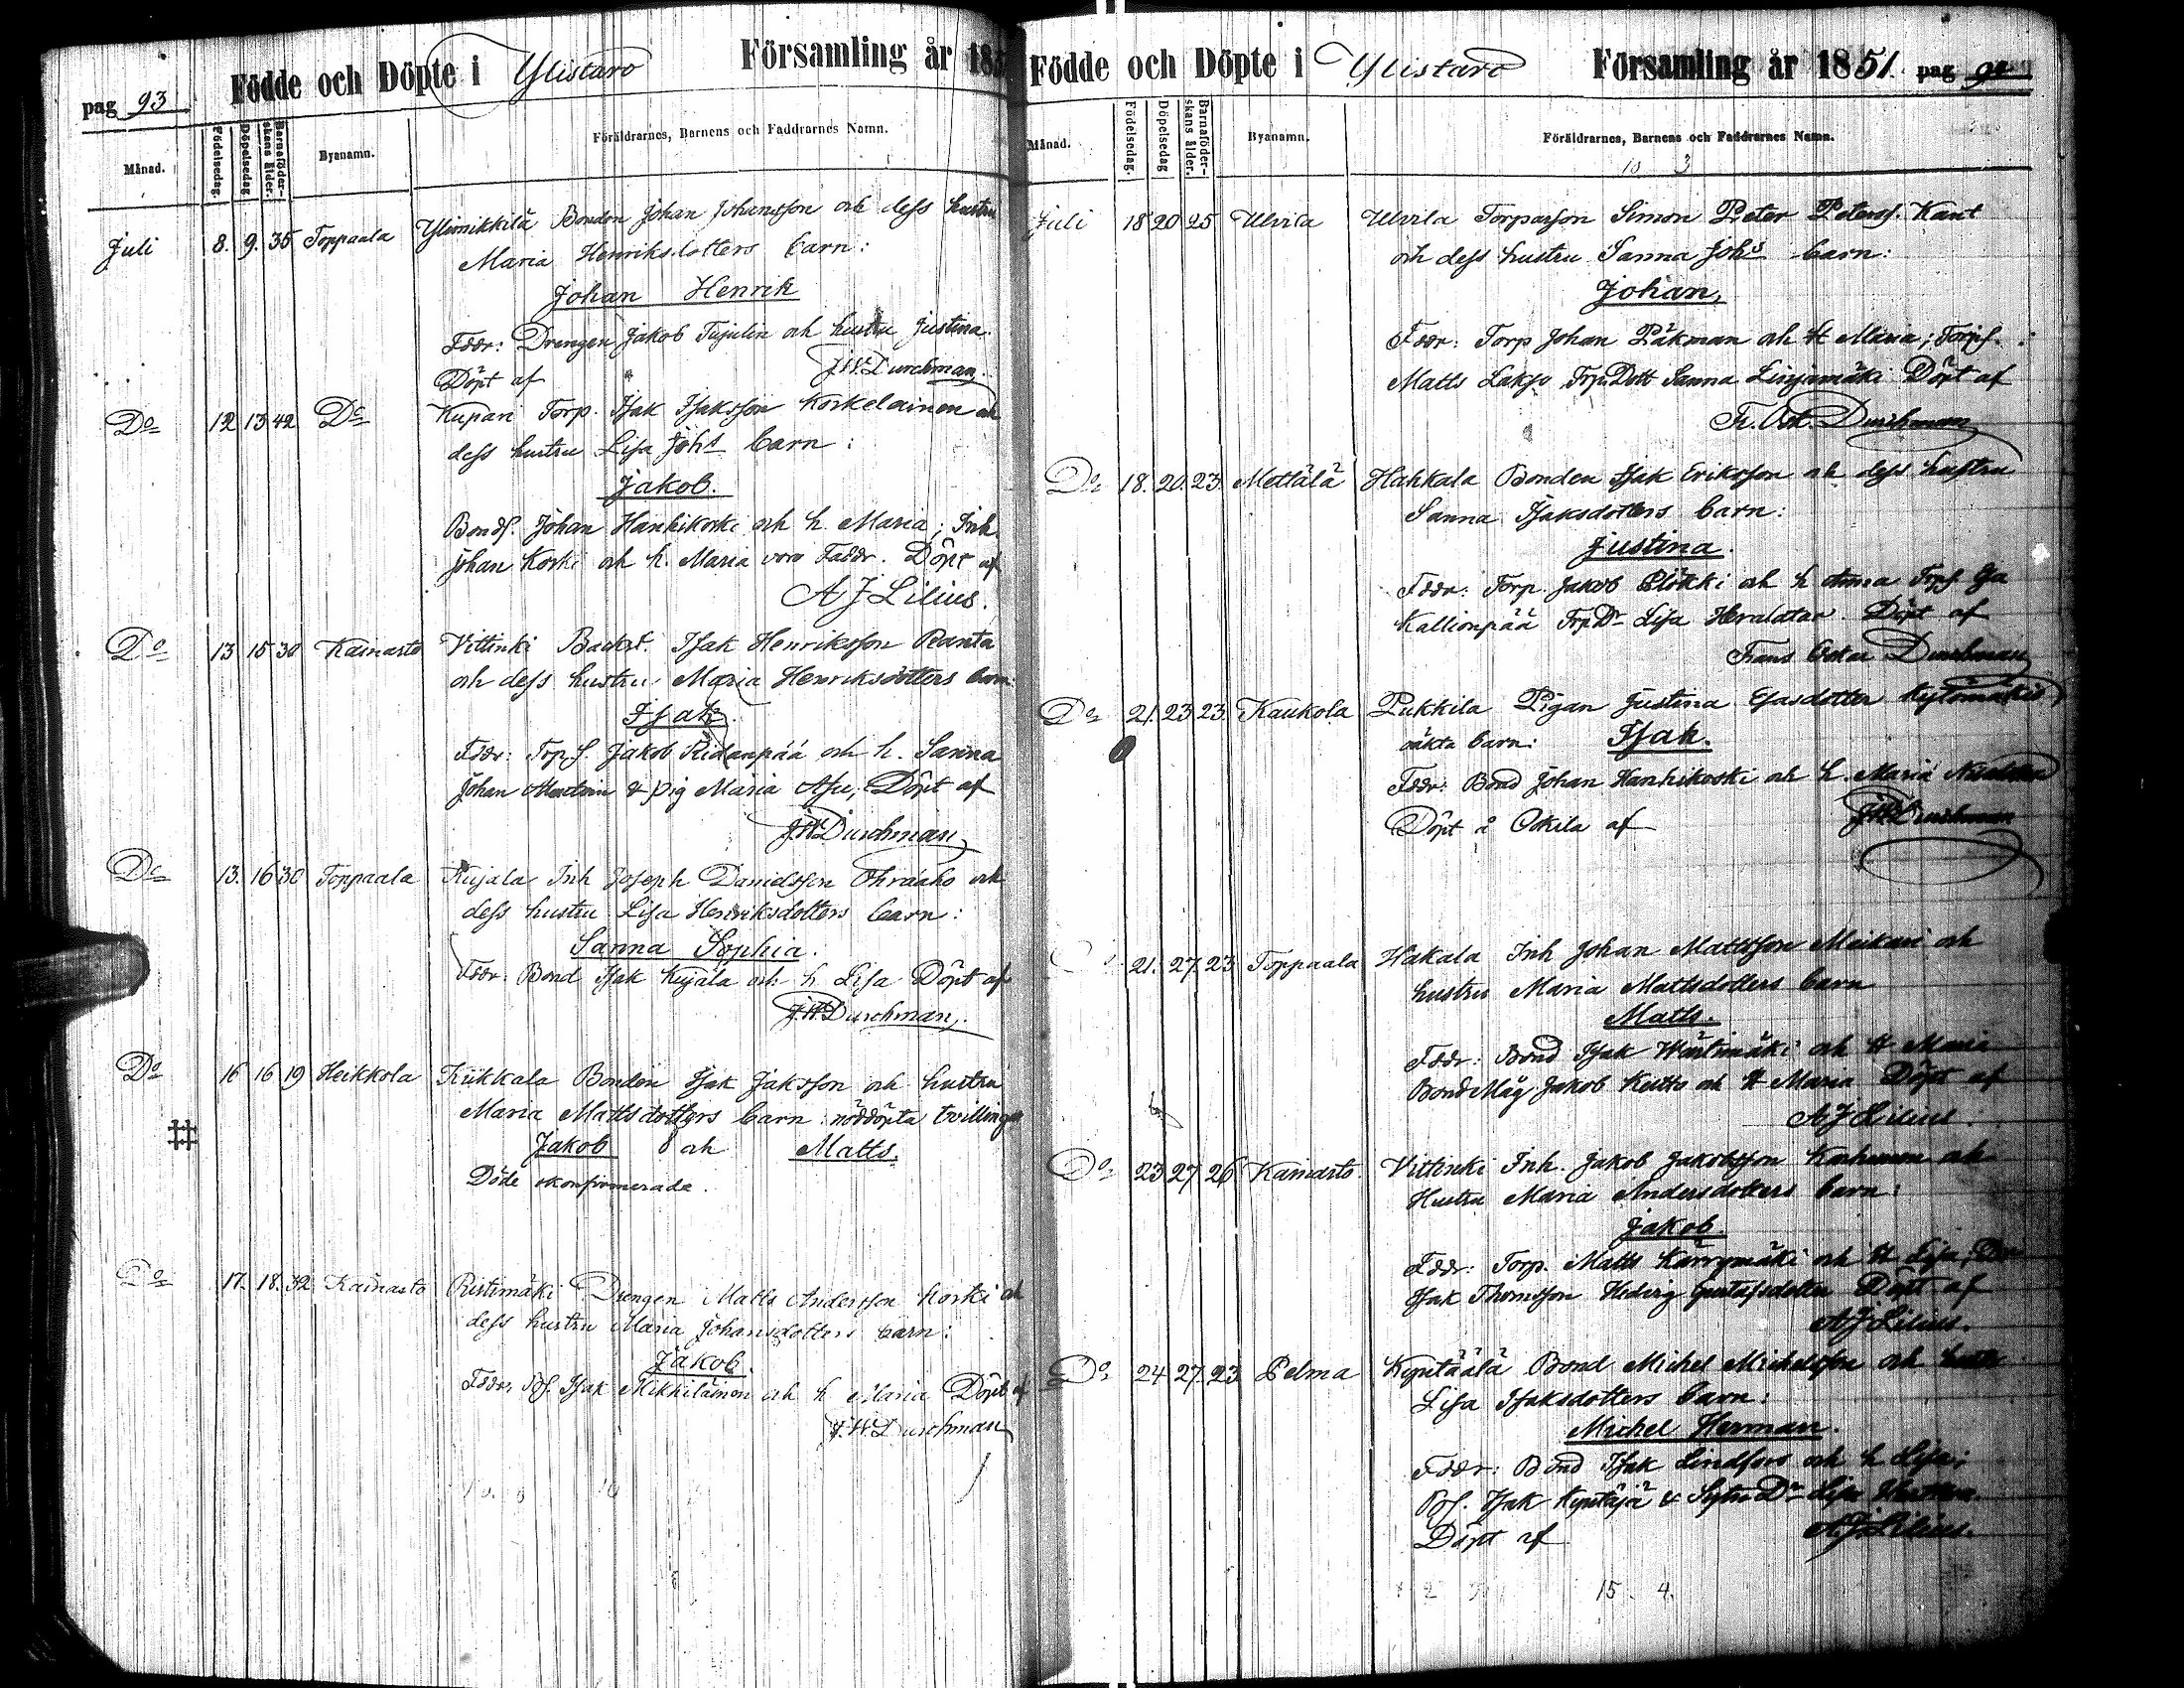 pag 93
Födde och Döpte i Ylistaro Församling år 185
Månad. Födelsedag. Döpelsedag. Barnaföderskans ålder. Byanamn. Föräldrarnes, Barnens och Faddrarnes Namn.
Juli 8. 9. 35 Toppaala Ylinikkilä Bonden Johan Johansson och dess hustru
Maria Henriksdotters barn:
Johan Henrik
Fddr: Drengen Jakob Tujulin och hustru Justina.
Döpt af J.W.Durchman.
Do 12 13 42 Do Kupari Torp. Isak Isaksson Korkelainen och
dess hustru Lisa Johs barn:
Jakob.
Bonds. Johan Hanhikoski och h. Maria; Inh.
Johan Koski och h. Maria voro Faddr. Döpt af
A J Lilius.
Do 13 15 30 Kainasto Vittinki Backst. Isak Henriksson Ranta
och dess hustru Maria Henriksdotters barn
Isak.
Fddr: Torp.s. Jakob Riidanpää och h. Sanna
Johan & pig Maria Döpt af
J.W.Durchman
Do 13. 16 30 Toppaala Kujala Inh Joseph Danielsson Ohraaho och
dess hustru Lisa Henriksdotters barn:
Sanna Sophia.
Fddr: Bond Isak Kujala och h Lisa Döpt af
J.W.Durchman.
Do 16 16 19 Heikkola Kiikkala Bonden Isak Jaksson och hustru
Maria Mattsdotters barn: nöddöpta tvillingar
Jakob och Matts.
Döde okonfirmerade.
Do 17. 18. 32 Kainasto Ristimäki Drengen Matts Andersson Koski och
dess hustru Maria Johansdotters barn:
Jakob.
Fddr. Isak Mikkilainen och h Maria Döpt af
J.W.Durchman
Födde och Döpte i Ylistaro Församling år 1851. pag 94
Månad. Födelsedag. Döpelsedag Barnaföderskans ålder. Byanamn. Föräldrarnes, Barnens och Faddrarnes Namn.
10 3
Juli 18 20 25 Ulvila Ulvila Torparson Simon Peter Peterss. Kant
och dess hustru Sanna Johs barn:
Johan,
Fddr: Torp Johan Päkman och H Maria; Torps.
Matts Lakso Trp.Dott Sanna Linjamäki Döpt af
Fr. Osk. Durchman
Do 18. 20. 23. Mettälä Hahkala Bonden Isak Eriksson och dess hustru
Sanna Isaksdotters barn:
Justina.
Fddr: Torp. Jakob Plökki och h Anna Trps
Kallionpää Trp Dr Lisa Heralatar. Döpt af
Frans Oskar Durchman
Do 21. 23 23. Kaukola Pukkila Pigan Justina Esasdotter Kytömäkis
oäkta barn: Isak.
Fddr: Bond Johan Hanhikoski och h. Maria
Döpt å Ockila af J.W.Durchman
21. 27. 23 Toppaala Hakala Inh Johan Mattsson Meikari och
hustru Maria Mattsdotters barn
Matts.
Fddr: Bond Isak Wäntimäki och H Maria
Bond Måg Jakob Kutto och H Maria Döpt af
A J Lilius
Do 23 27 26 Kainasto. Vittinki Inh. Jakob Jakobsson Korhonen och
Hustru Maria Andersdotters barn:
Jakob.
Fddr: Torp. Matts Kärrymäki och H Lisa;
Isak Thomsson Hedvig Gustafsdotter Döpt af
A J Lilius.
Do 24 27. 23 Pelma Kyntäälä Bond Michel Michelsson och hustru
Lisa Isaksdotters barn:
Michel Herman.
Fddr: Bond Isak Lindfors och h Lisa;
Isak Kyntäjä & Dr Lisa
Döpt af A.J.Lilius.
15 4.